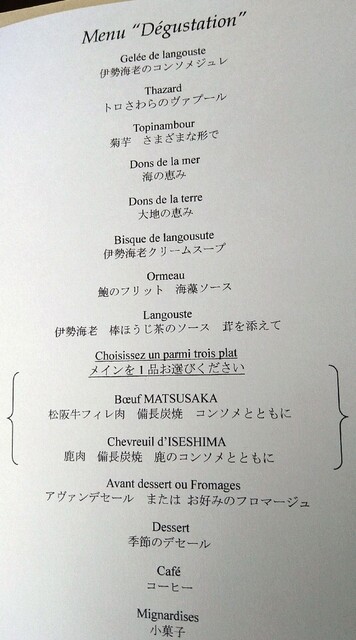 Menu “Dégustation”
Gelée de langouste
伊勢海老のコンソメジュレ
Thazard
トロさわらのヴァプール
Topinambour
菊芋　さまざまな形で
Dons de la mer
海の恵み
Dons de la terre
大地の恵み
Bisque de langousute
伊勢海老クリームスープ
Ormeau
鮑のフリット　海藻ソース
Langouste
伊勢海老　棒ほうじ茶のソース　茸を添えて
Choisissez un parmi trois plat
メインを1品お選びください
Bœuf MATSUSAKA
松阪牛フィレ肉　備長炭焼　コンソメとともに
Chevreuil d’ISESHIMA
鹿肉　備長炭焼　鹿のコンソメとともに
Avant dessert ou Fromages
アヴァンデセール　または お好みのフロマージュ
Dessert
季節のデセール
Café
コーヒー
Mignardises
小菓子